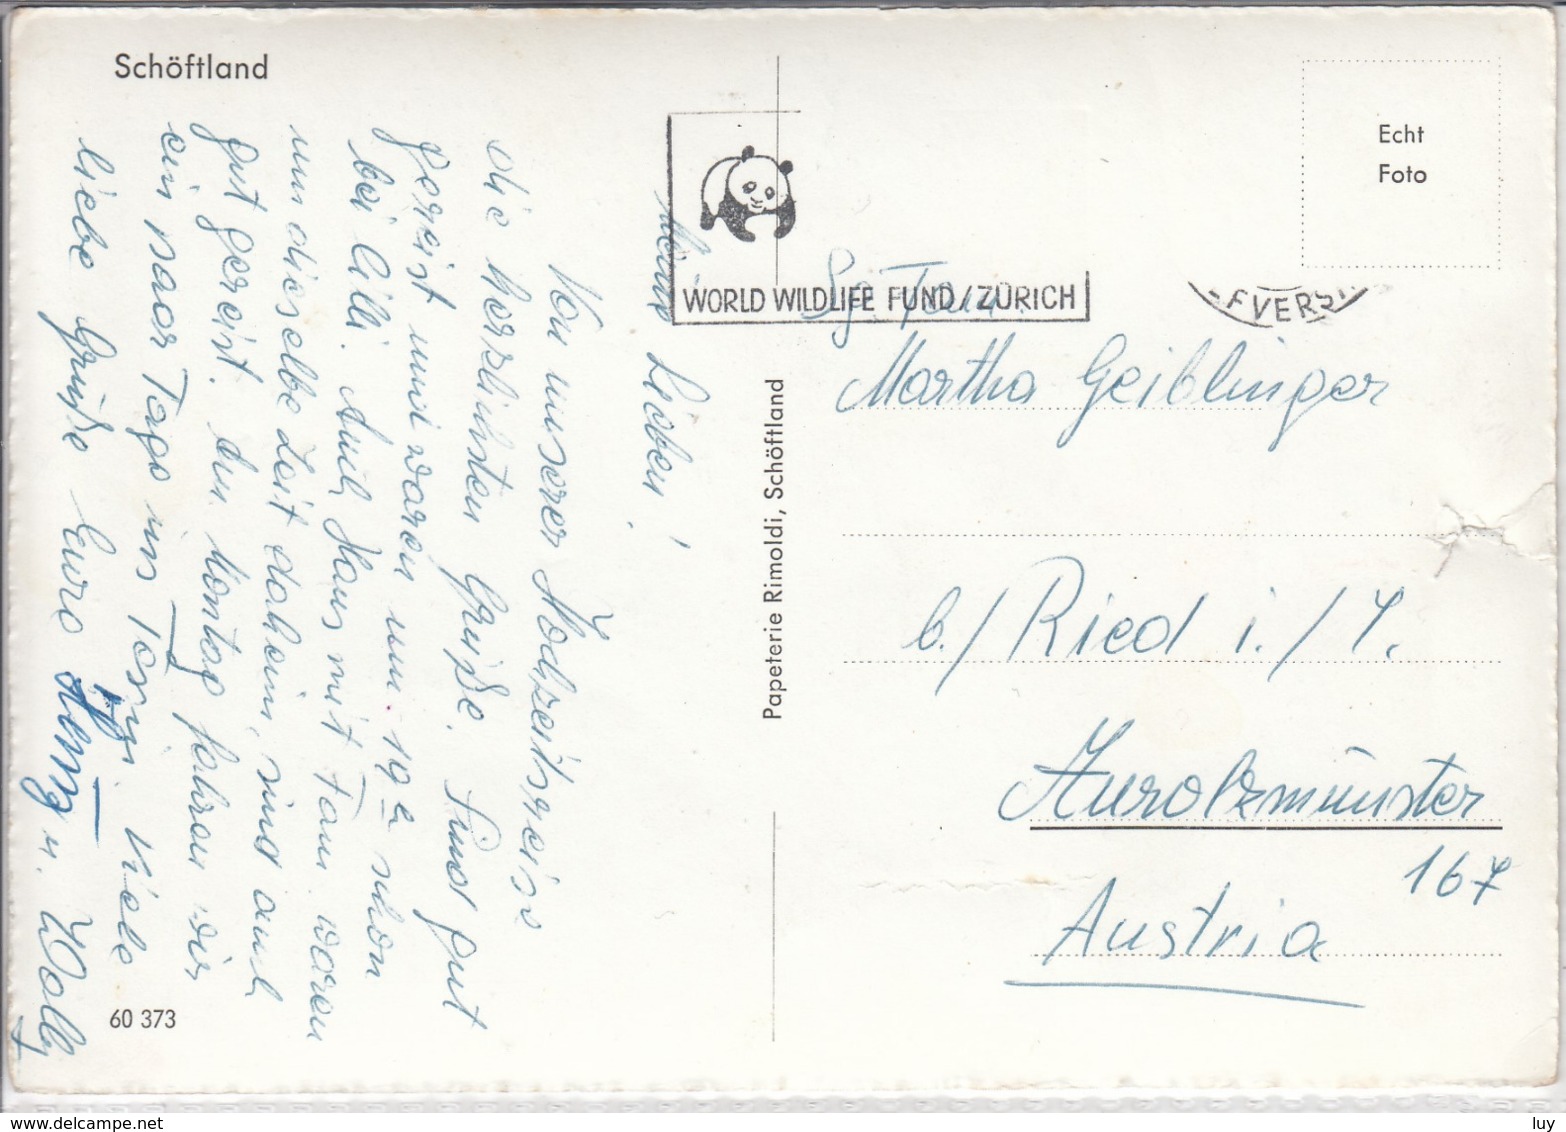 Schöftland
Meine Lieben!
Von unserer Hochzeitsreise
die herzlichsten Grüße. Sind gut
gereist und waren um 19h schon
bei Lilli. Auch Hans mit Fam. waren
um dieselbe Zeit daheim, sind auch
gut gereist. Am Montag fahren wir
ein paar Tage ins Tessin. Viele
liebe Grüße Eure u. Wally
60 373
Papeterie Rimoldi, Schöftland
WORLD WILDLIFE FUND/ZÜRICH
FVERSI
Echt
Foto
Sg. Fam.
Martha Geiblinger
b./Ried i./I.
Aurolzmünster
167
Austria
www.delcampe.net
luy